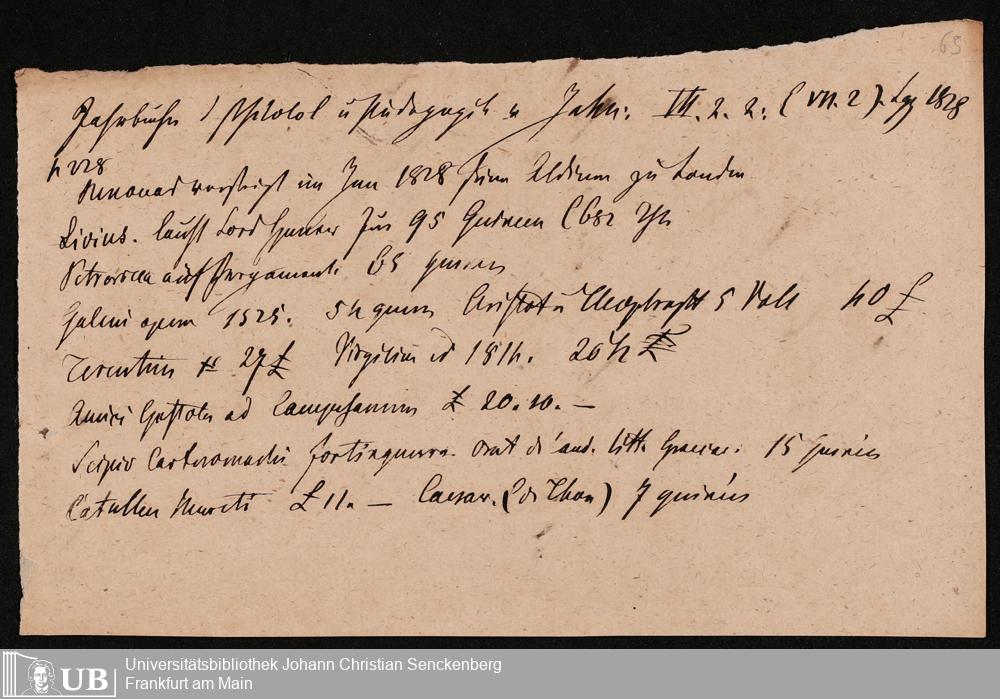 65
Jahrbücher f Philolol u Pädagogik v Jahn: III. 2. 2: (VII. 2). Lpz 1828
p 228
Renouard versteigt im Jun 1828 seine Aldinen zu London
Livius. kauft Lord für 95 Guineen (682 Th
Petrarcha auf Pergament. 65 guineen
Galeni opera 1525. 54 guin Aristot u Theophrast 5 Voll 40 £
Terentius 27 £ Virgilius ed 1814. 20
ad Campesanum £ 20. 10. —
Scipio Carteromachi fortinguerra. orat de laud. litt. Graecar. 15 guineen
Catullus Mureti £ 11. — Caesar. (de Thou) 7 guinéis
UB
Universitätsbibliothek Johann Christian Senckenberg
Frankfurt am Main